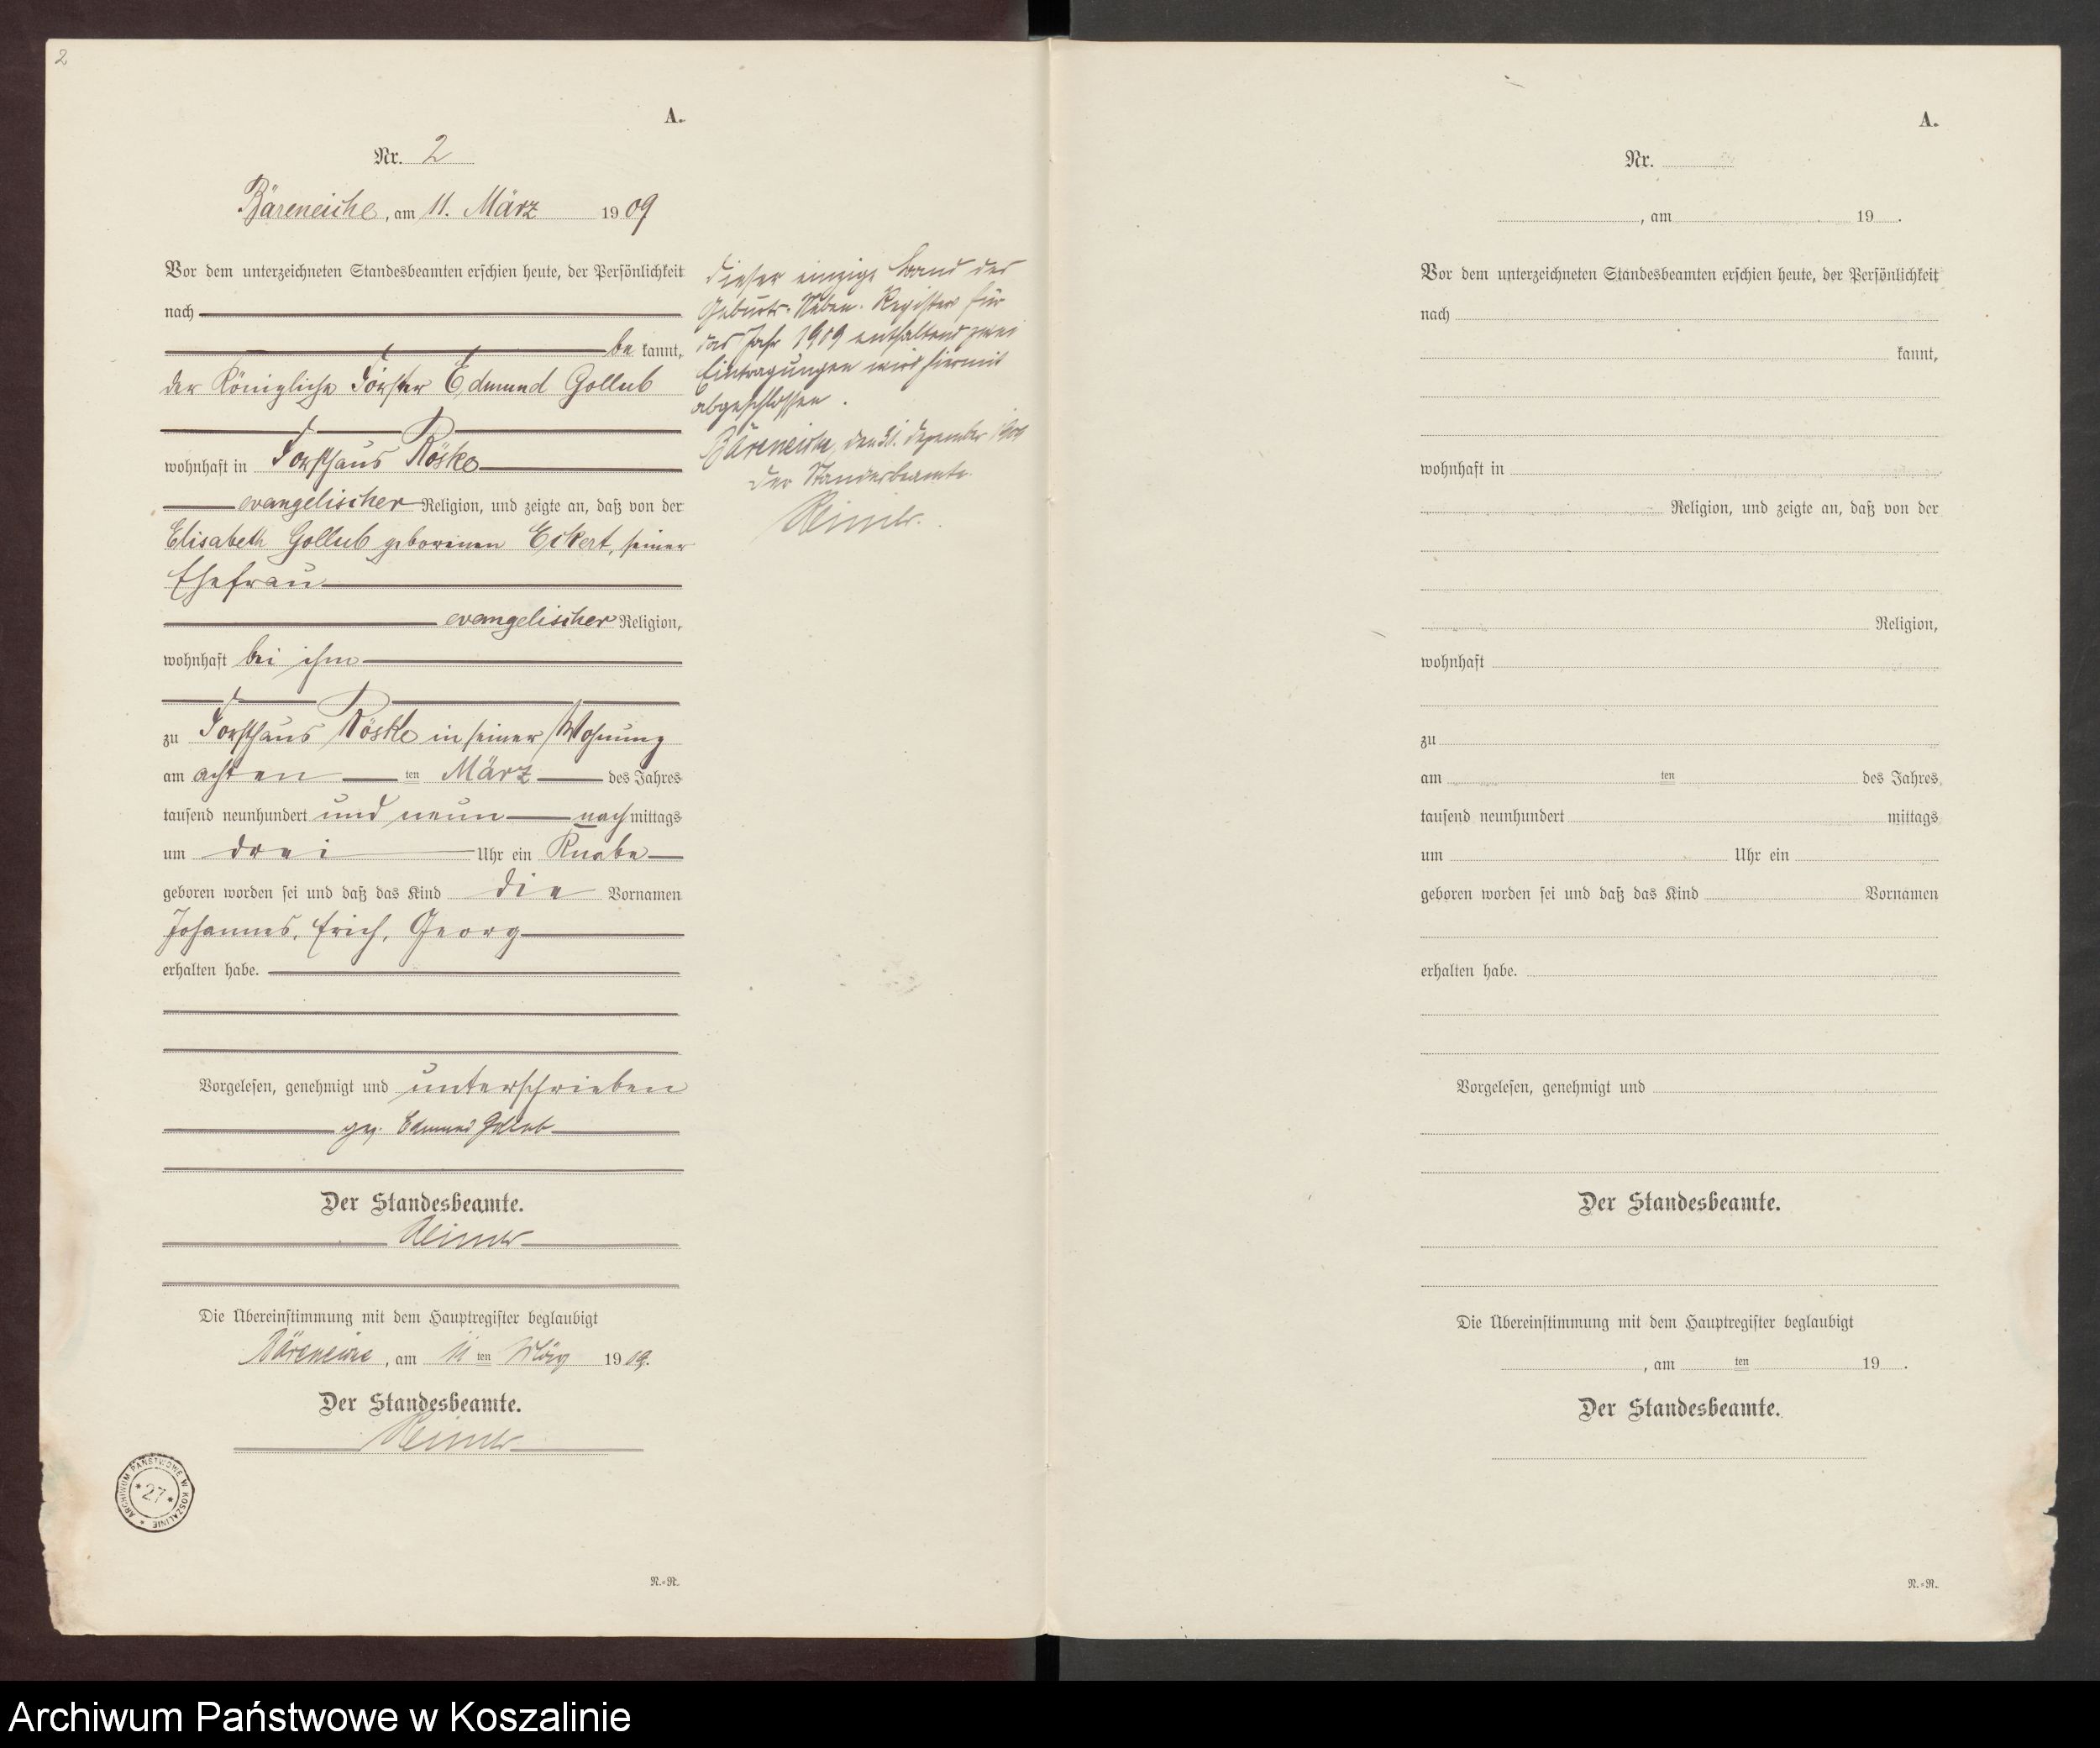 2
A.
Nr. 2
Bäreneiche, am 11. März 1909
Vor dem unterzeichneten Standesbeamten erschien heute, der Persönlichkeit
nach
be kannt,
der Königliche Förster Edmund Gollub
wohnhaft in Forsthaus Röske
evangelischer Religion, und zeigte an, daß von der
Elisabeth Gollub geborenen Eckert, seiner
Ehefrau
evangelischer Religion,
wohnhaft bei ihm
zu Forsthaus Röske in seiner Wohnung
am achten ten März des Jahres
tausend neunhundert und neun nachmittags
um drei Uhr ein Knabe
geboren worden sei und daß das Kind die Vornamen
Johannes, Erich, Georg
erhalten habe.
Vorgelesen, genehmigt und unterschrieben
gez. Edmund Gollub
Der Standesbeamte.
Die Übereinstimmung mit dem Hauptregister beglaubigt
Bäreneiche, am 11 ten März 1909.
Der Standesbeamte.
ARCHIWUM PAŃSTWOWE W KOSZALINIE
* 27 *
N.=R.
Dieser einzige Band des
Geburts-Neben-Registers für
das Jahr 1909 enthaltend zwei
Eintragungen wird hiermit
abgeschlossen.
Bäreneiche, den 31. Dezember 1909
Der Standesbeamte.
A.
Nr.
, am 19 .
Vor dem unterzeichneten Standesbeamten erschien heute, der Persönlichkeit
nach
kannt,
wohnhaft in
Religion, und zeigte an, daß von der
Religion,
wohnhaft
zu
am ten des Jahres
tausend neunhundert mittags
um Uhr ein
geboren worden sei und daß das Kind Vornamen
erhalten habe.
Vorgelesen, genehmigt und
Der Standesbeamte.
Die Übereinstimmung mit dem Hauptregister beglaubigt
, am ten 19 .
Der Standesbeamte.
N.=R.
Archiwum Państwowe w Koszalinie